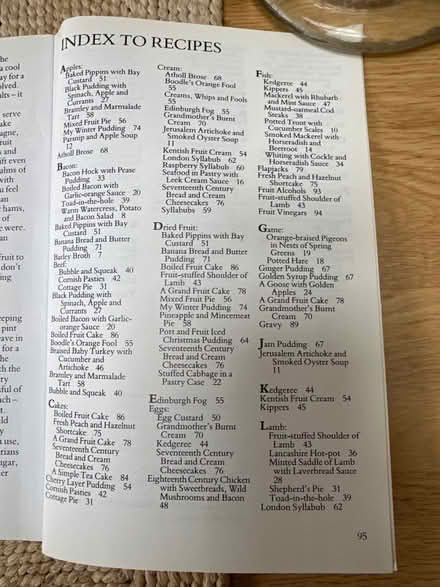 INDEX TO RECIPES
Apples:
Baked Pippins with Bay
Custard 51
Black Pudding with
Spinach, Apple and
Currants 27
Bramley and Marmalade
Tart 58
Mixed Fruit Pie 56
My Winter Pudding 74
Parsnip and Apple Soup
12
Atholl Brose 68
Bacon:
Bacon Hock with Pease
Pudding 33
Boiled Bacon with
Garlic-orange Sauce 20
Toad-in-the-hole 39
Warm Watercress, Potato
and Bacon Salad 8
Baked Pippins with Bay
Custard 51
Banana Bread and Butter
Pudding 71
Barley Broth 7
Beef:
Bubble and Squeak 40
Cornish Pasties 42
Cottage Pie 31
Black Pudding with
Spinach, Apple and
Currants 27
Boiled Bacon with Garlic-
orange Sauce 20
Boiled Fruit Cake 86
Boodle's Orange Fool 55
Braised Baby Turkey with
Cucumber and
Artichoke 46
Bramley and Marmalade
Tart 58
Bubble and Squeak 40
Cakes:
Boiled Fruit Cake 86
Fresh Peach and Hazelnut
Shortcake 75
A Grand Fruit Cake 78
Seventeenth Century
Bread and Cream
Cheesecakes 76
A Simple Tea Cake 84
Cherry Layer Pudding 54
Cornish Pasties 42
Cottage Pie 31
Cream:
Atholl Brose 68
Boodle's Orange Fool
55
Creams, Whips and Fools
55
Edinburgh Fog 55
Grandmother's Burnt
Cream 70
Jerusalem Artichoke and
Smoked Oyster Soup
11
Kentish Fruit Cream 54
London Syllabub 62
Raspberry Syllabub 60
Seafood in Pastry with
Leek Cream Sauce 16
Seventeenth Century
Bread and Cream
Cheesecakes 76
Syllabubs 59
Dried Fruit:
Baked Pippins with Bay
Custard 51
Banana Bread and Butter
Pudding 71
Boiled Fruit Cake 86
Fruit-stuffed Shoulder of
Lamb 43
A Grand Fruit Cake 78
Mixed Fruit Pie 56
My Winter Pudding 74
Pineapple and Mincemeat
Pie 58
Port and Fruit Iced
Christmas Pudding 64
Seventeenth Century
Bread and Cream
Cheesecakes 76
Stuffed Cabbage in a
Pastry Case 22
Edinburgh Fog 55
Eggs:
Egg Custard 50
Grandmother's Burnt
Cream 70
Kedgeree 44
Seventeenth Century
Bread and Cream
Cheesecakes 76
Eighteenth Century Chicken
with Sweetbreads, Wild
Mushrooms and Bacon
48
Fish:
Kedgeree 44
Kippers 45
Mackerel with Rhubarb
and Mint Sauce 47
Mustard-oatmeal Cod
Steaks 38
Potted Trout with
Cucumber Scales 10
Smoked Mackerel with
Horseradish and
Beetroot 14
Whiting with Cockle and
Horseradish Sauce 34
Flapjacks 79
Fresh Peach and Hazelnut
Shortcake 75
Fruit Alcohols 93
Fruit-stuffed Shoulder of
Lamb 43
Fruit Vinegars 94
Game:
Orange-braised Pigeons
in Nests of Spring
Greens 19
Potted Hare 18
Ginger Pudding 67
Golden Syrup Pudding 67
A Goose with Golden
Apples 24
A Grand Fruit Cake 78
Grandmother's Burnt
Cream 70
Gravy 89
Jam Pudding 67
Jerusalem Artichoke and
Smoked Oyster Soup
11
Kedgeree 44
Kentish Fruit Cream 54
Kippers 45
Lamb:
Fruit-stuffed Shoulder of
Lamb 43
Lancashire Hot-pot 36
Minted Saddle of Lamb
with Laverbread Sauce
28
Shepherd's Pie 31
Toad-in-the-hole 39
London Syllabub 62
95